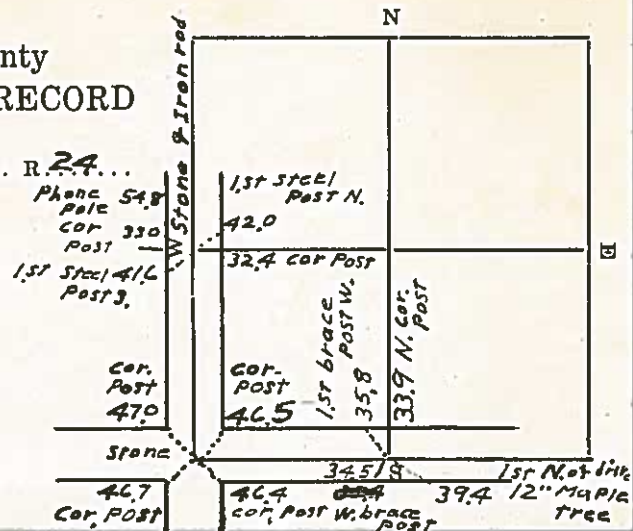 N
nty
RECORD
R. 24
Stone & Iron rod
Phone pole 54.8
Cor Post 33.0
1st Steel 41.6
Post S.
W
1st Steel
Post N.
42.0
32.4 Cor Post
E
1st brace
Post W.
35.8
33.9 N. Cor.
Post
Cor.
Post
47.0
Cor-
Post
46.5
Stone
34.5
S
1st N. of drive
46.7
Cor. Post
46.4
Cor. Post
W. brace
Post
39.4
12" Maple
tree